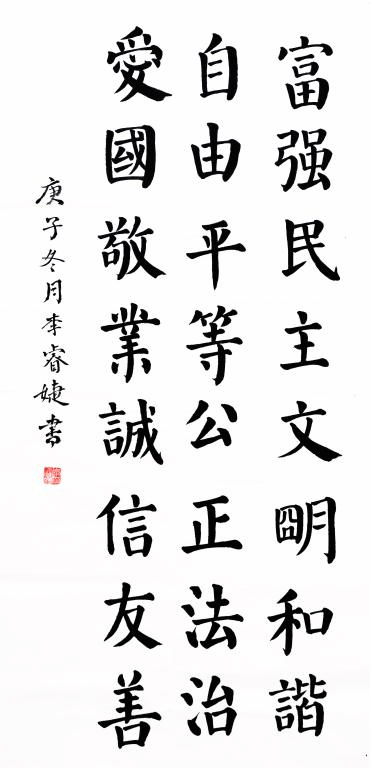 富强民主文明和諧
自由平等公正法治
愛國敬業誠信友善
庚子冬月李睿婕書